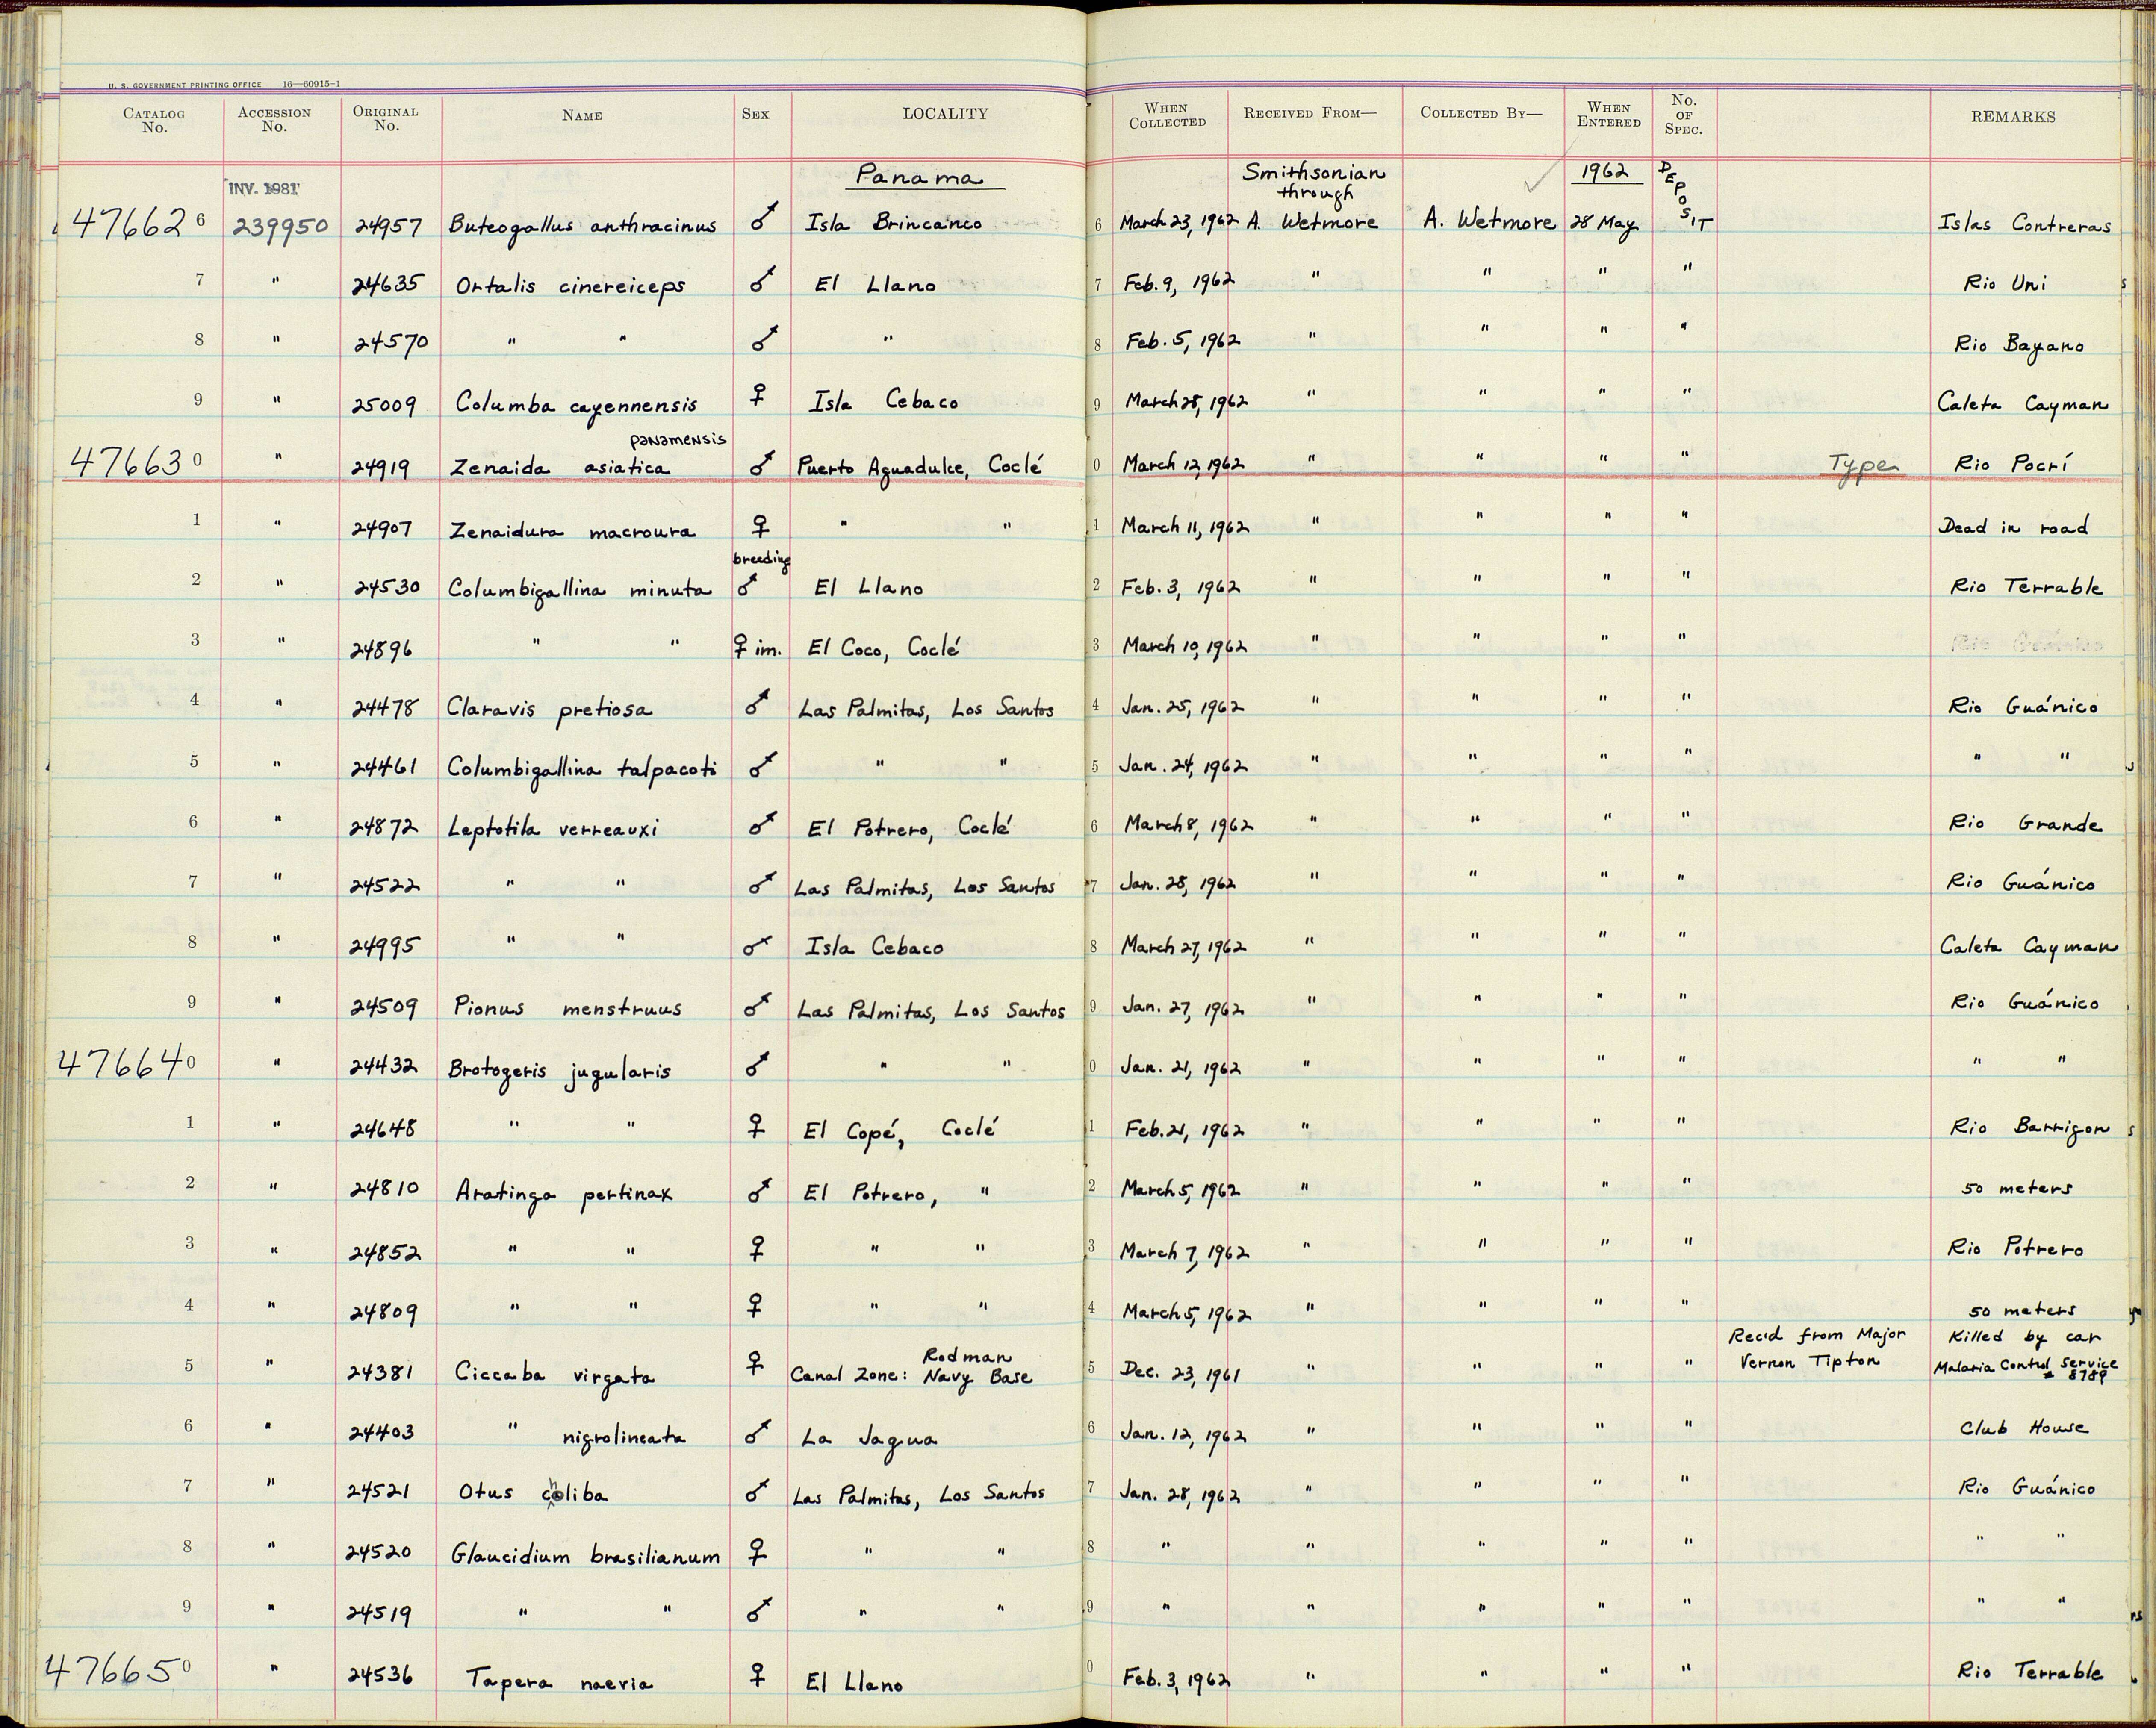 U. S. GOVERNMENT PRINTING OFFICE 16—60915-1
CATALOG No. ACCESSION No. ORIGINAL No. NAME SEX LOCALITY WHEN COLLECTED RECEIVED FROM— COLLECTED BY— WHEN ENTERED No. OF SPEC. REMARKS
INV. 1981 Panama Smithsonian through 1962 DEPOSIT
476626 239950 24957 Buteogallus anthracinus ♂ Isla Brincanco 6 March 23, 1962 A. Wetmore A. Wetmore 28 May Islas Contreras
7 " 24635 Ortalis cinereiceps ♂ El Llano 7 Feb. 9, 1962 " " " " Rio Uni
8 " 24570 " " ♂ " 8 Feb. 5, 1962 " " " " Rio Bayano
9 " 25009 Columba cayennensis ♀ Isla Cebaco 9 March 28, 1962 " " " " Caleta Cayman
panamensis
476630 " 24919 Zenaida asiatica ♂ Puerto Aguadulce, Coclé 0 March 12, 1962 " " " " Type Rio Pocrí
1 " 24907 Zenaidura macroura ♀ " " 1 March 11, 1962 " " " " Dead in road
breeding
2 " 24530 Columbigallina minuta ♂ El Llano 2 Feb. 3, 1962 " " " " Rio Terrable
3 " 24896 " " ♀ im. El Coco, Coclé 3 March 10, 1962 " " " "
4 " 24478 Claravis pretiosa ♂ Las Palmitas, Los Santos 4 Jan. 25, 1962 " " " " Rio Guánico
5 " 24461 Columbigallina talpacoti ♂ " " 5 Jan. 24, 1962 " " " " " "
6 " 24872 Leptotila verreauxi ♂ El Potrero, Coclé 6 March 8, 1962 " " " " Rio Grande
7 " 24522 " " ♂ Las Palmitas, Los Santos 7 Jan. 28, 1962 " " " " Rio Guánico
8 " 24995 " " ♂ Isla Cebaco 8 March 27, 1962 " " " " Caleta Cayman
9 " 24509 Pionus menstruus ♂ Las Palmitas, Los Santos 9 Jan. 27, 1962 " " " " Rio Guánico
476640 " 24432 Brotogeris jugularis ♂ " " 0 Jan. 21, 1962 " " " " " "
1 " 24648 " " ♀ El Copé, Coclé 1 Feb. 21, 1962 " " " " Rio Barrigon
2 " 24810 Aratinga pertinax ♂ El Potrero, " 2 March 5, 1962 " " " " 50 meters
3 " 24852 " " ♀ " " 3 March 7, 1962 " " " " Rio Potrero
4 " 24809 " " ♀ " " 4 March 5, 1962 " " " " 50 meters
Rodman Rec'd from Major Killed by car
5 " 24381 Ciccaba virgata ♀ Canal Zone: Navy Base 5 Dec. 23, 1961 " " " " Vernon Tipton Malaria Control Service # 8789
6 " 24403 " nigrolineata ♂ La Jagua 6 Jan. 12, 1962 " " " " Club House
7 " 24521 Otus choliba ♂ Las Palmitas, Los Santos 7 Jan. 28, 1962 " " " " Rio Guánico
8 " 24520 Glaucidium brasilianum ♀ " " 8 " " " " " " "
9 " 24519 " " ♂ " " 9 " " " " " " "
476650 " 24536 Tapera naevia ♀ El Llano 0 Feb. 3, 1962 " " " " Rio Terrable